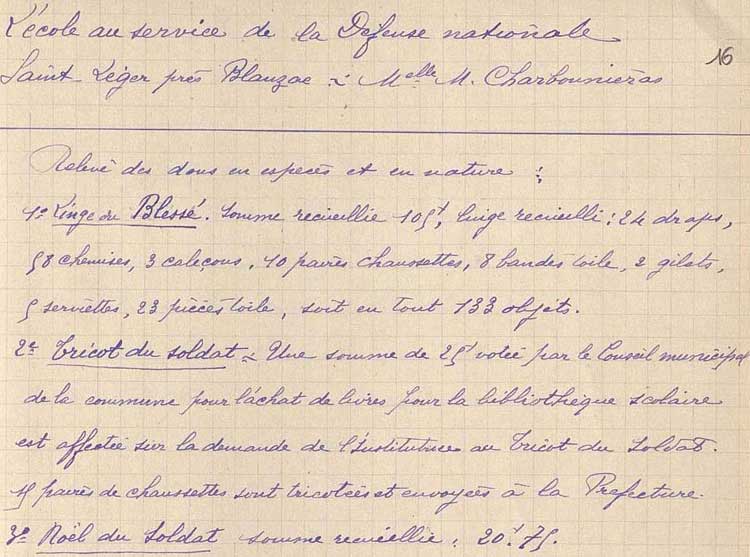 L'école au service de la Défense nationale
16
Saint Léger près Blanzac : Melle M. Charbounièras
Relevé des dons en espèces et en nature :
1º Linge du Blessé. Somme recueillie 105f, linge recueilli : 24 draps,
58 chemises, 3 caleçons, 10 paires chaussettes, 8 bandes toile, 2 gilets,
5 serviettes, 23 pièces toile, soit en tout 133 objets.
2º Tricot du soldat = Une somme de 25f votée par le Conseil municipal
de la commune pour l'achat de livres pour la bibliothèque scolaire
est affectée sur la demande de l'Institutrice au Tricot du Soldat.
paires de chaussettes sont tricotées et envoyées à la Prefecture.
3º Noël du Soldat somme recueillie : 20f.75.